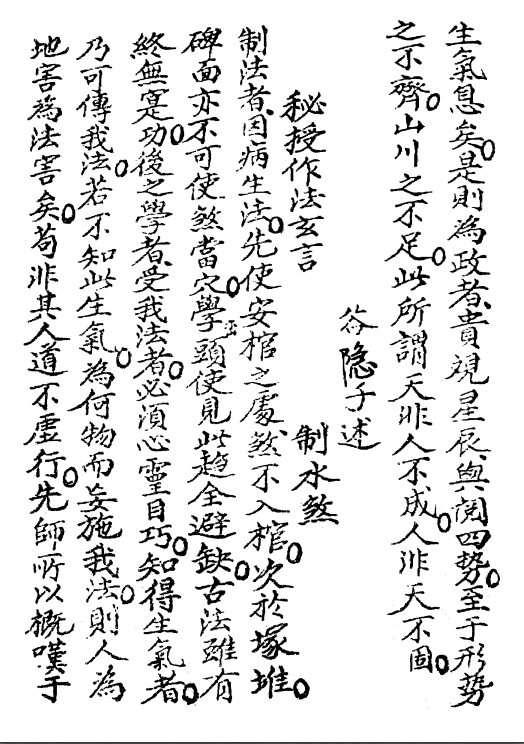 生氣息矣。是則為政者、貴規星辰、與閱四勢。至于形勢
之不齊。山川之不足。此所謂天非人不成。人非天不固。
谷隐子述
秘授作法玄言
制水煞
制法者、因病生法。先使安棺之處、煞不入棺。次於塚堆。
碑面亦不可使煞當穴。學頭使見此趋全避缺。古法雖有
終無寔功。後之學者、受我法者。必須心靈目巧。知得生氣者。
乃可傳我法。若不知此生氣。為何物而妄施我法。則人為
地害為法害矣。苟非其人道不虛行。先師所以概嘆于